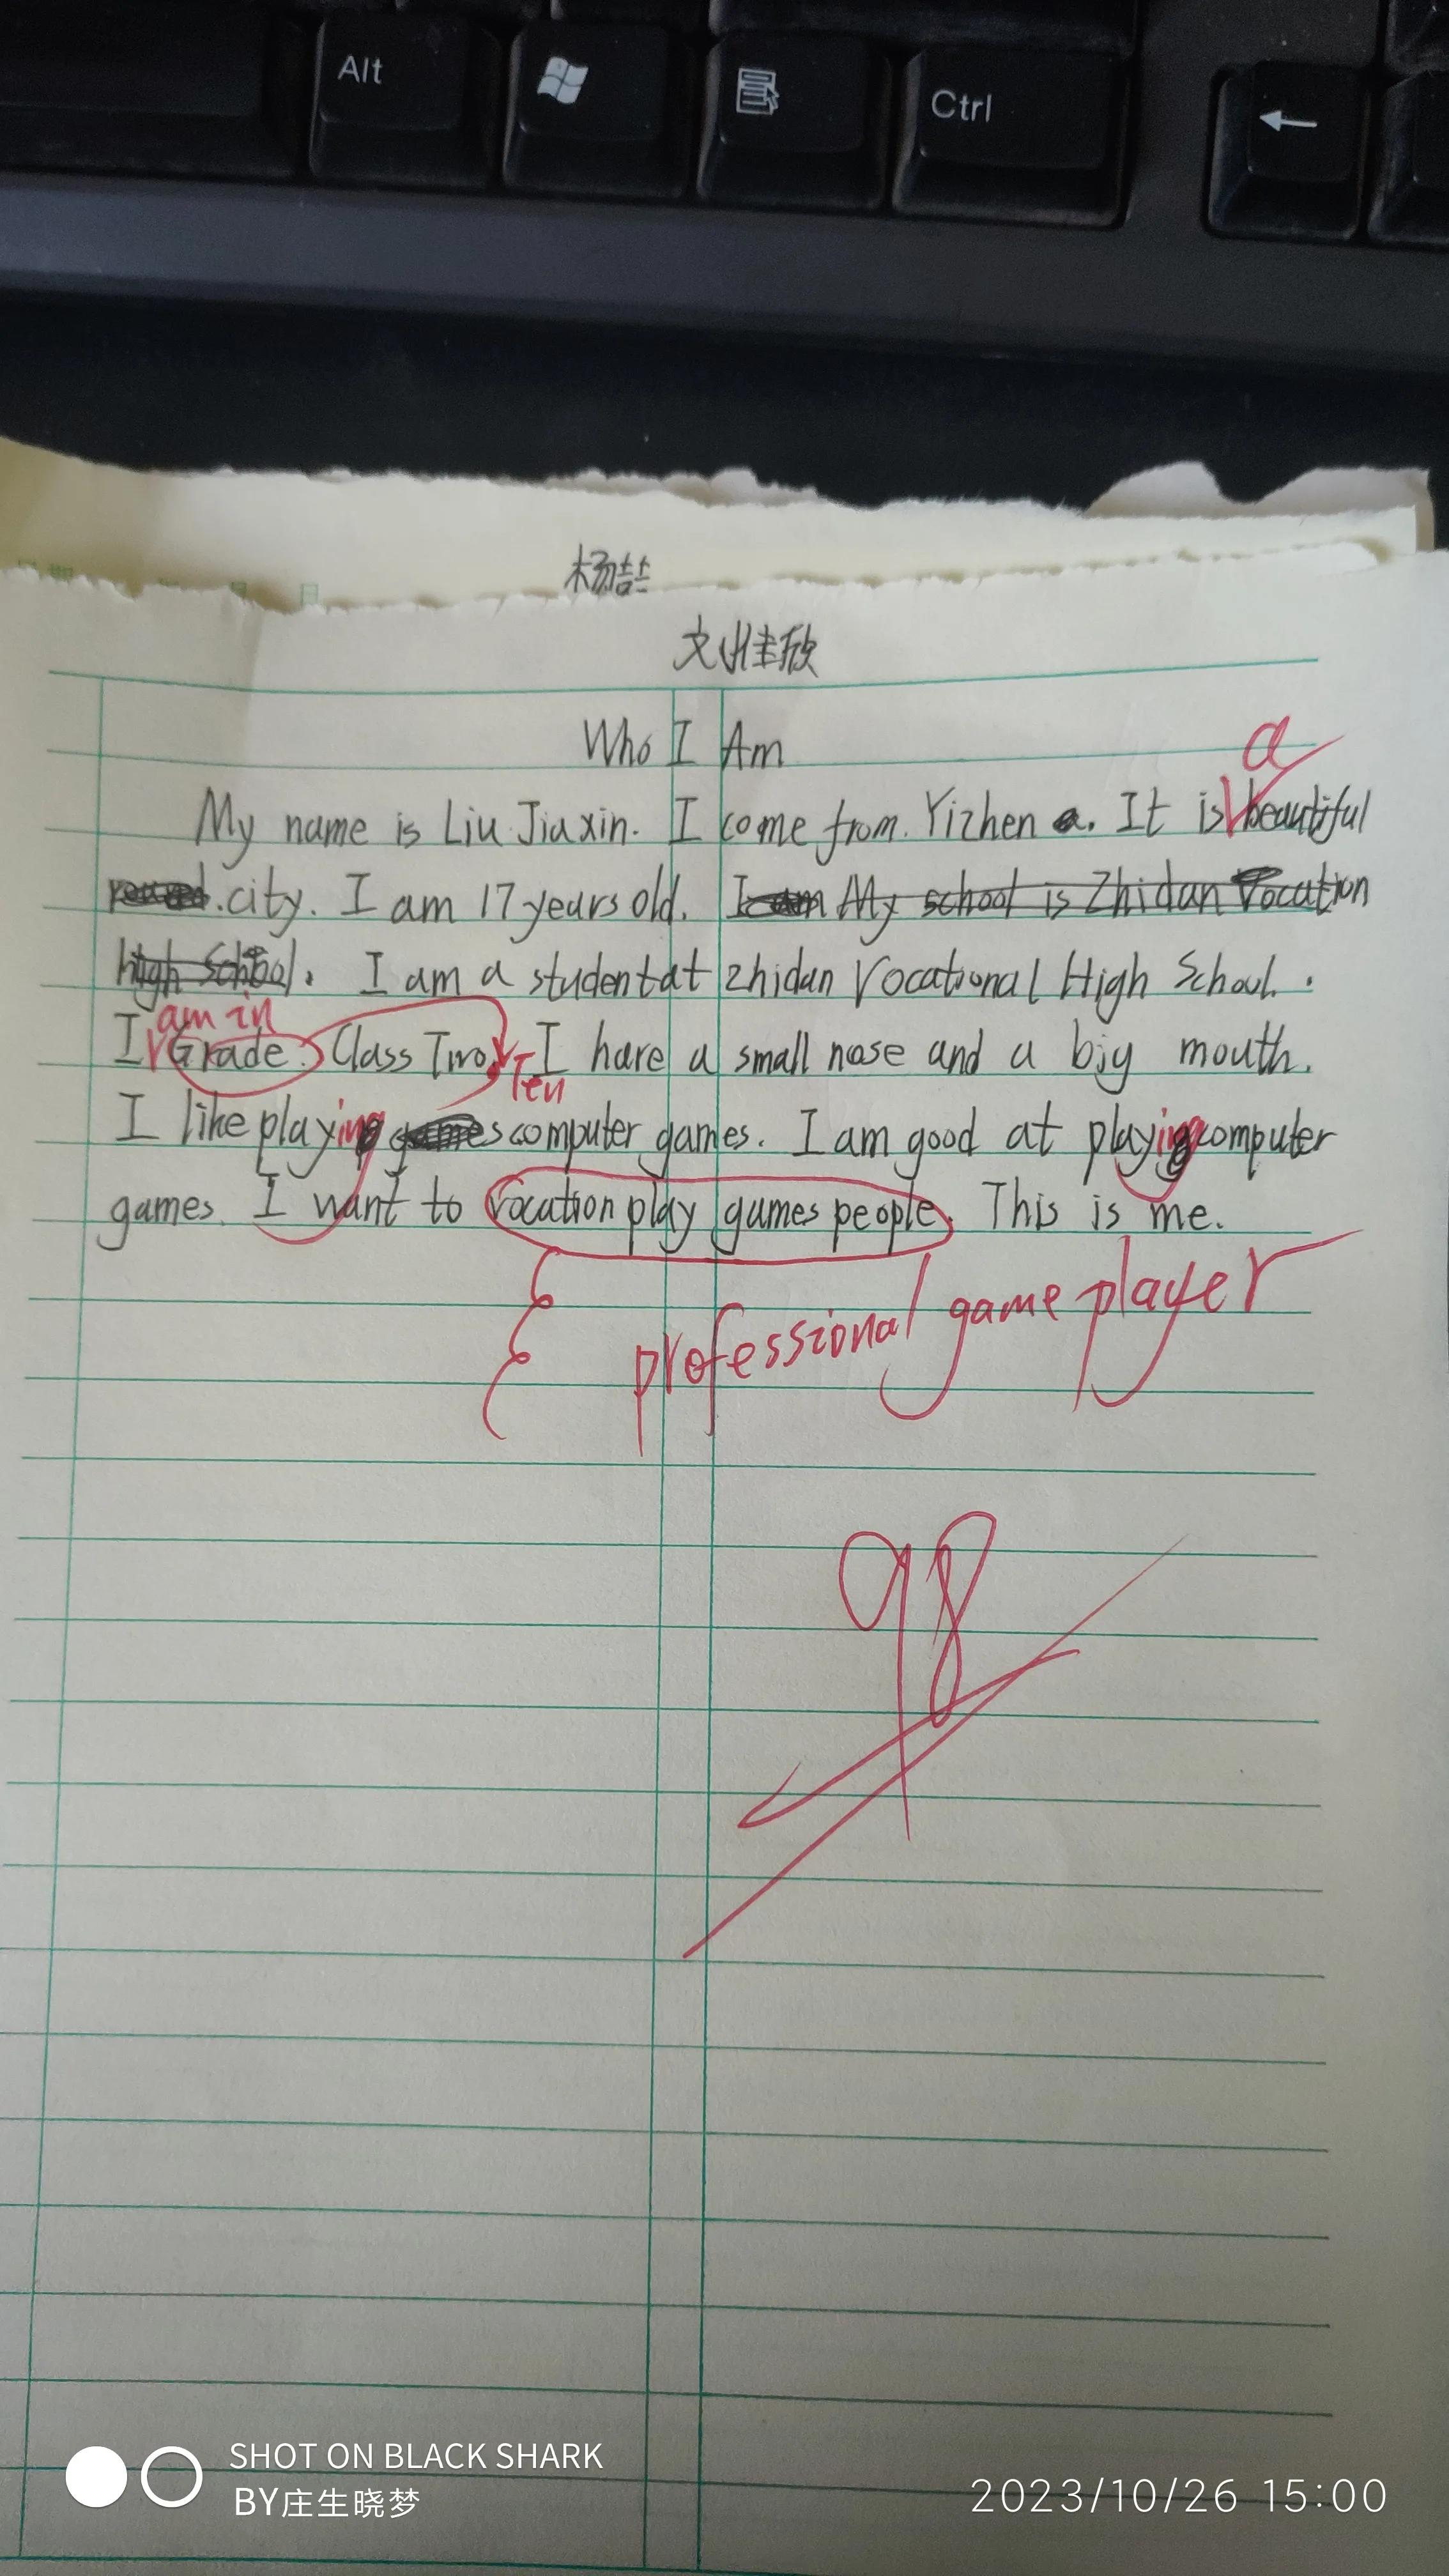 Alt
Ctrl
←
杨喆
刘佳欣
Who I Am
a
My name is Liu Jiaxin. I come from Yizhen a. It is beautiful
city. I am 17 years old. I am My school is Zhidan Vocation
high school. I am a student at Zhidan Vocational High School.
am in
I Grade. Class Two. I have a small nose and a big mouth.
Ten
I like playing games computer games. I am good at playing computer
games. I want to vocation play games people. This is me.
professional game player
98
SHOT ON BLACK SHARK
BY庄生晓梦
2023/10/26 15:00